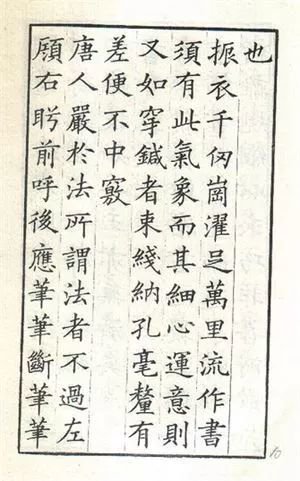 也
振衣千仞崗濯足萬里流作書
須有此氣象而其細心運意則
又如穿鍼者束綫納孔毫釐有
差便不中竅
唐人嚴於法所謂法者不過左
顧右盻前呼後應筆筆斷筆筆
10